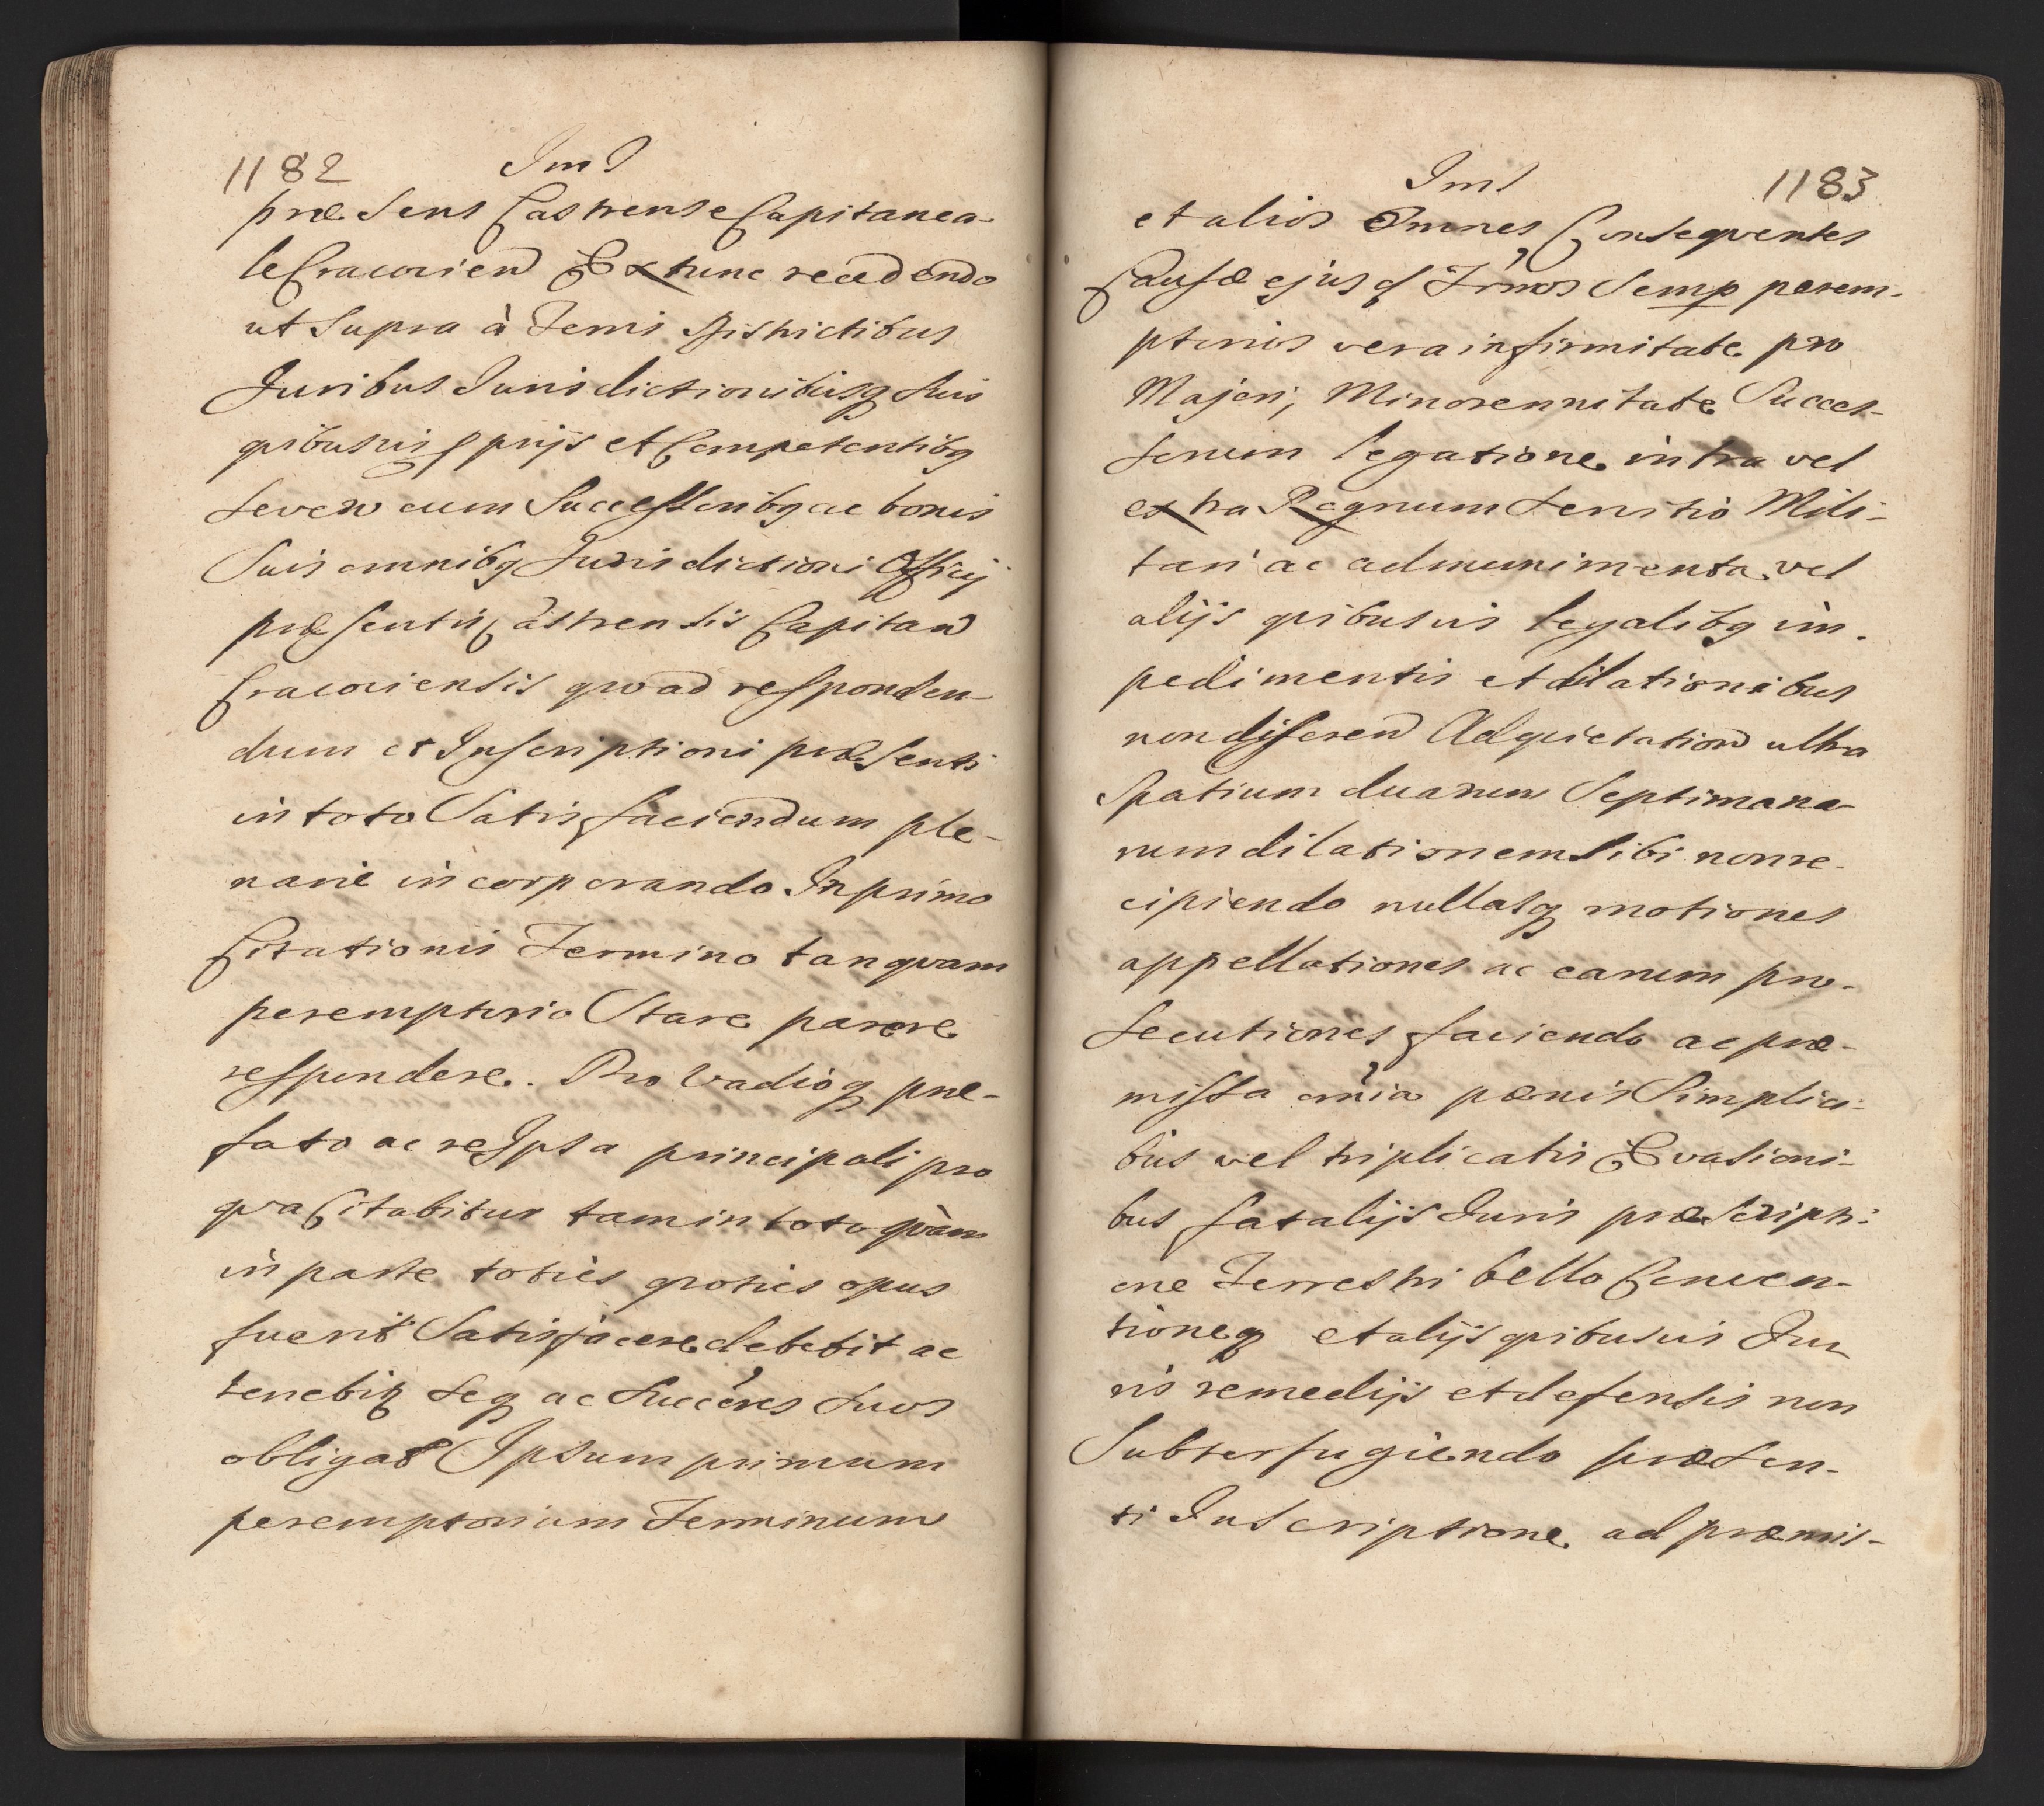 1182 Im̄
præsens Castrense Capitanea-
le Cracovien̄ Extunc recedendo
ut supra à Terris Districtibus
Juribus Jurisdictionibusq suis
quibusvis p̱prijs et Competentibq
sevew cum Successoribq ac bonis
Suis omnibq Jurisdictioni Officij
præsentis Castrensis Capitan̄
Cracoviensis qvoad responden-
dum et Inscriptioni præsenti
in toto Satisfaciendum ple-
nariè in corporando In primo
Citationis Termino tanqvam
peremptorio Stare parere
respondere. Pro Vadioq præ-
fato ac re Ipsa principali pro
qva Citabitur tam in toto qvàm
in parte toties qvoties opus
fuerit Satisfacere debebit ac
tenebiꝫ seq ac Succ͛res suos
obligat Ipsum primum
peremptorium Terminum
Im̄ 1183
et alios Omnes Conseqventes
Causæ ejusꝗ Tr͛nos Semp perem-
ptorios vera infirmitate pro
Majori, Minorennitate Succes-
sorum legatione intra vel
extra Regnum servitio Mili-
tari ac ad munimenta vel
alijs qvibusvis legalibq im-
pedimentis et dilationibus
non differen̄ Ad qvietation̄ ultra
Spatium duarum Septimana-
rum dilationem Sibi non re-
cipiendo nullasq motiones
appellationes ac earum pro-
secutiones faciendo ac præ-
missa om̄ia pænis Simplici-
bus vel triplicatis Evasioni-
bus fatalijs Juris præscripti-
one Terrestri bello Conven-
tioneq et alijs qvibusvis Ju-
ris remedijs et defensis non
Subterfugiendo præsen-
ti Inscriptione ad præmis-